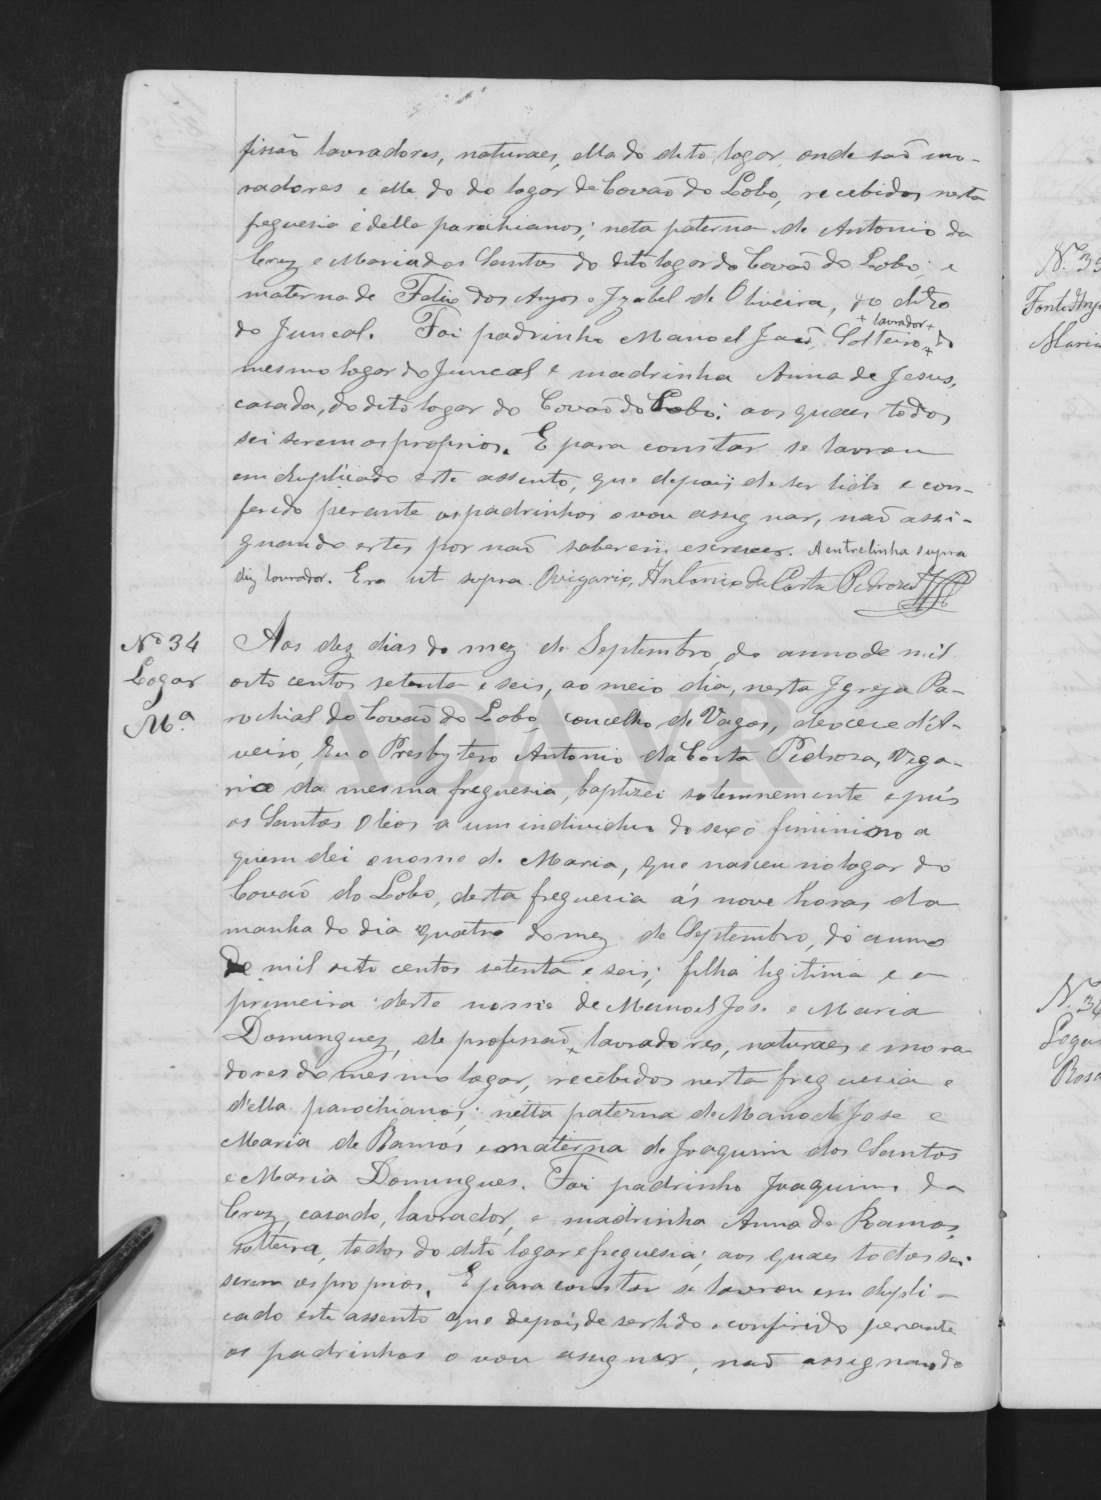 fissão lavradores, naturaes, ella do dito logar onde são mo-
radores e elle do do logar de Covão do Lobo, recebidos nesta
freguesia e della parochianos; neta paterna de Antonio da
Cruz e Maria dos Santos do dito logar do Covão do Lobo; e
materna de Felix dos Anjos e Izabel de Oliveira, do dito
+ lavrador +
do Juncal. Foi padrinho Manoel João, Solteiro, + do
mesmo logar do Juncal e madrinha Anna de Jesus,
casada, do dito logar do Covão do Lobo; aos quaes todos
sei serem os proprios. E para constar se lavrou
em duplicado este assento, que depois de ser lido e con-
ferido perante os padrinhos o vou assignar, não assi-
gnando estes por não saberem escrever. A entrelinha supra
diz lavrador. Era ut supra. O vigario, Antonio da Costa Pedroza
Nº 34
Logar
Mª
Aos dez dias do mez de Septembro do anno de mil
oito centos setenta e seis, ao meio dia, nesta Igreja Pa-
rochial do Covão do Lobo, concelho de Vagos, diocese d'A-
veiro, Eu o Presbytero Antonio da Costa Pedroza, Viga-
rio da mesma freguesia, baptizei solemnemente e pús
os Santos Oleos a um individuo do sexo feminino a
quem dei o nome de Maria, que nasceu no logar do
Covão do Lobo, desta freguesia ás nove horas da
manha do dia quatro do mez de Septembro, do anno
De mil oito centos setenta e seis; filha legitima e a
primeira deste nome de Manoel José e Maria
Dominguez, de profissão + lavradores, naturaes e mora
dores do mesmo logar, recebidos nesta freguesia e
d'ella parochianos; netta paterna de Manoel Jose e
Maria de Ramos, e materna de Joaquim dos Santos
e Maria Domingues. Foi padrinho Joaquim da
Cruz, casado, lavrador, e madrinha Anna de Ramos,
solteira, todos do dito logar e freguesia; aos quaes todos sei
serem os proprios. E para constar se lavrou em dupli-
cado este assento que depois de ser lido e conferido perante
os padrinhos o vou assignar, não assignando
N. 35
Maria
N. 36
Rosa
ADAVR